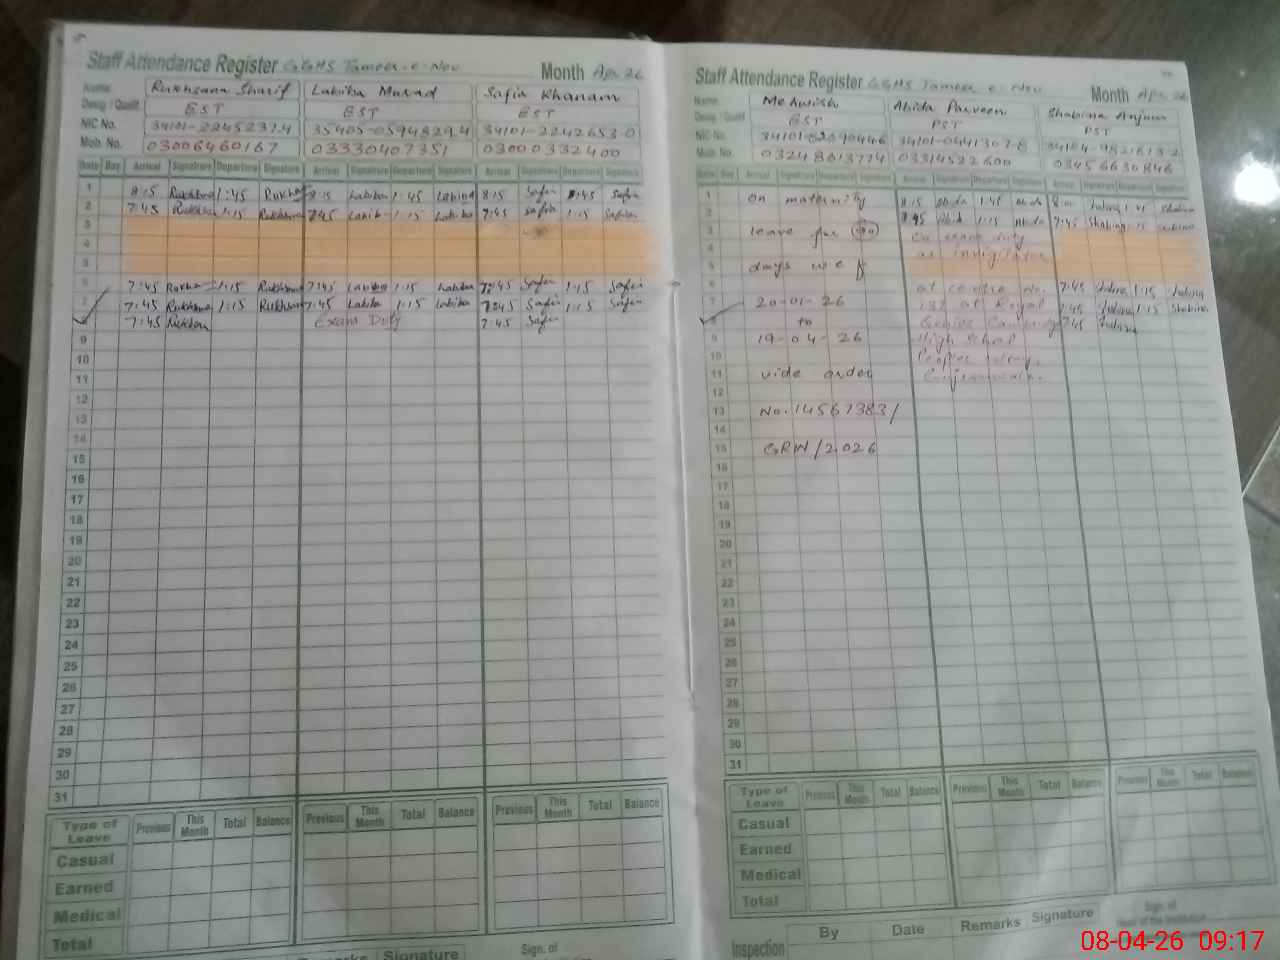 Staff Attendance Register GGHS Tameer-e-Nou Month Apr 26
Name: Rukhsana Sharif Labiba Murad Safia Khanam
Desig / Qualif. EST EST EST
NIC No. 34101-2245237-4 35405-0594829-4 34101-2242653-0
Mob. No. 03006460167 03330407351 03000332400
Date Day Arrival Signature Departure Signature Arrival Signature Departure Signature Arrival Signature Departure Signature
1 8:15 Rukhsana 1:45 8:15 Labiba 1:45 Labiba 8:15 Safia 1:45 Safia
2 7:45 Rukhsana 1:15 Rukhsana 7:45 Labiba 1:15 Labiba 7:45 Safia 1:15 Safia
3
4
5
6 7:45 1:15 Rukhsana 7:45 Labiba 1:15 Labiba 7:45 Safia 1:15 Safia
7 7:45 Rukhsana 1:15 Rukhsana 7:45 Labiba 1:15 Labiba 7:45 Safia 1:15 Safia
8 7:45 Rukhsana Exam Duty 7:45 Safia
9
10
11
12
13
14
15
16
17
18
19
20
21
22
23
24
25
26
27
28
29
30
31
Type of Leave Previous This Month Total Balance Previous This Month Total Balance Previous This Month Total Balance
Casual
Earned
Medical
Total
Remarks Signature Sign. of
Staff Attendance Register GGHS Tameer e Nou Month Apr 26
Name: Mehwish Abida Parveen Shabina Anjum
Desig / Qualif EST PST PST
NIC No.
Mob. No. 03248613774 03314522600 03456630846
Date Day Arrival Signature Departure Signature Arrival Signature Departure Signature Arrival Signature Departure Signature
1 on maternity 8:15 1:45
2 7:45 Abida 1:15 Abida 7:45 Shabina 1:15
3 leave for 90 On exam duty
4 as invigilator
5 days w e f
6 at centre No. 7:45 1:15
7 20-01-26 at Royal 7:45 1:15 Shabina
8 to Genius Cambridge 7:45
9 19-04-26 High School
10 Peoples colony,
11 vide order Gujranwala.
12
13 No. 14567383/
14
15 GRW/2026
16
17
18
19
20
21
22
23
24
25
26
27
28
29
30
31
Type of Leave Previous This Month Total Balance Previous This Month Total Balance Previous This Month Total Balance
Casual
Earned
Medical
Total
Inspection By Date Remarks Signature Sign. of
Head of the Institution
08-04-26 09:17